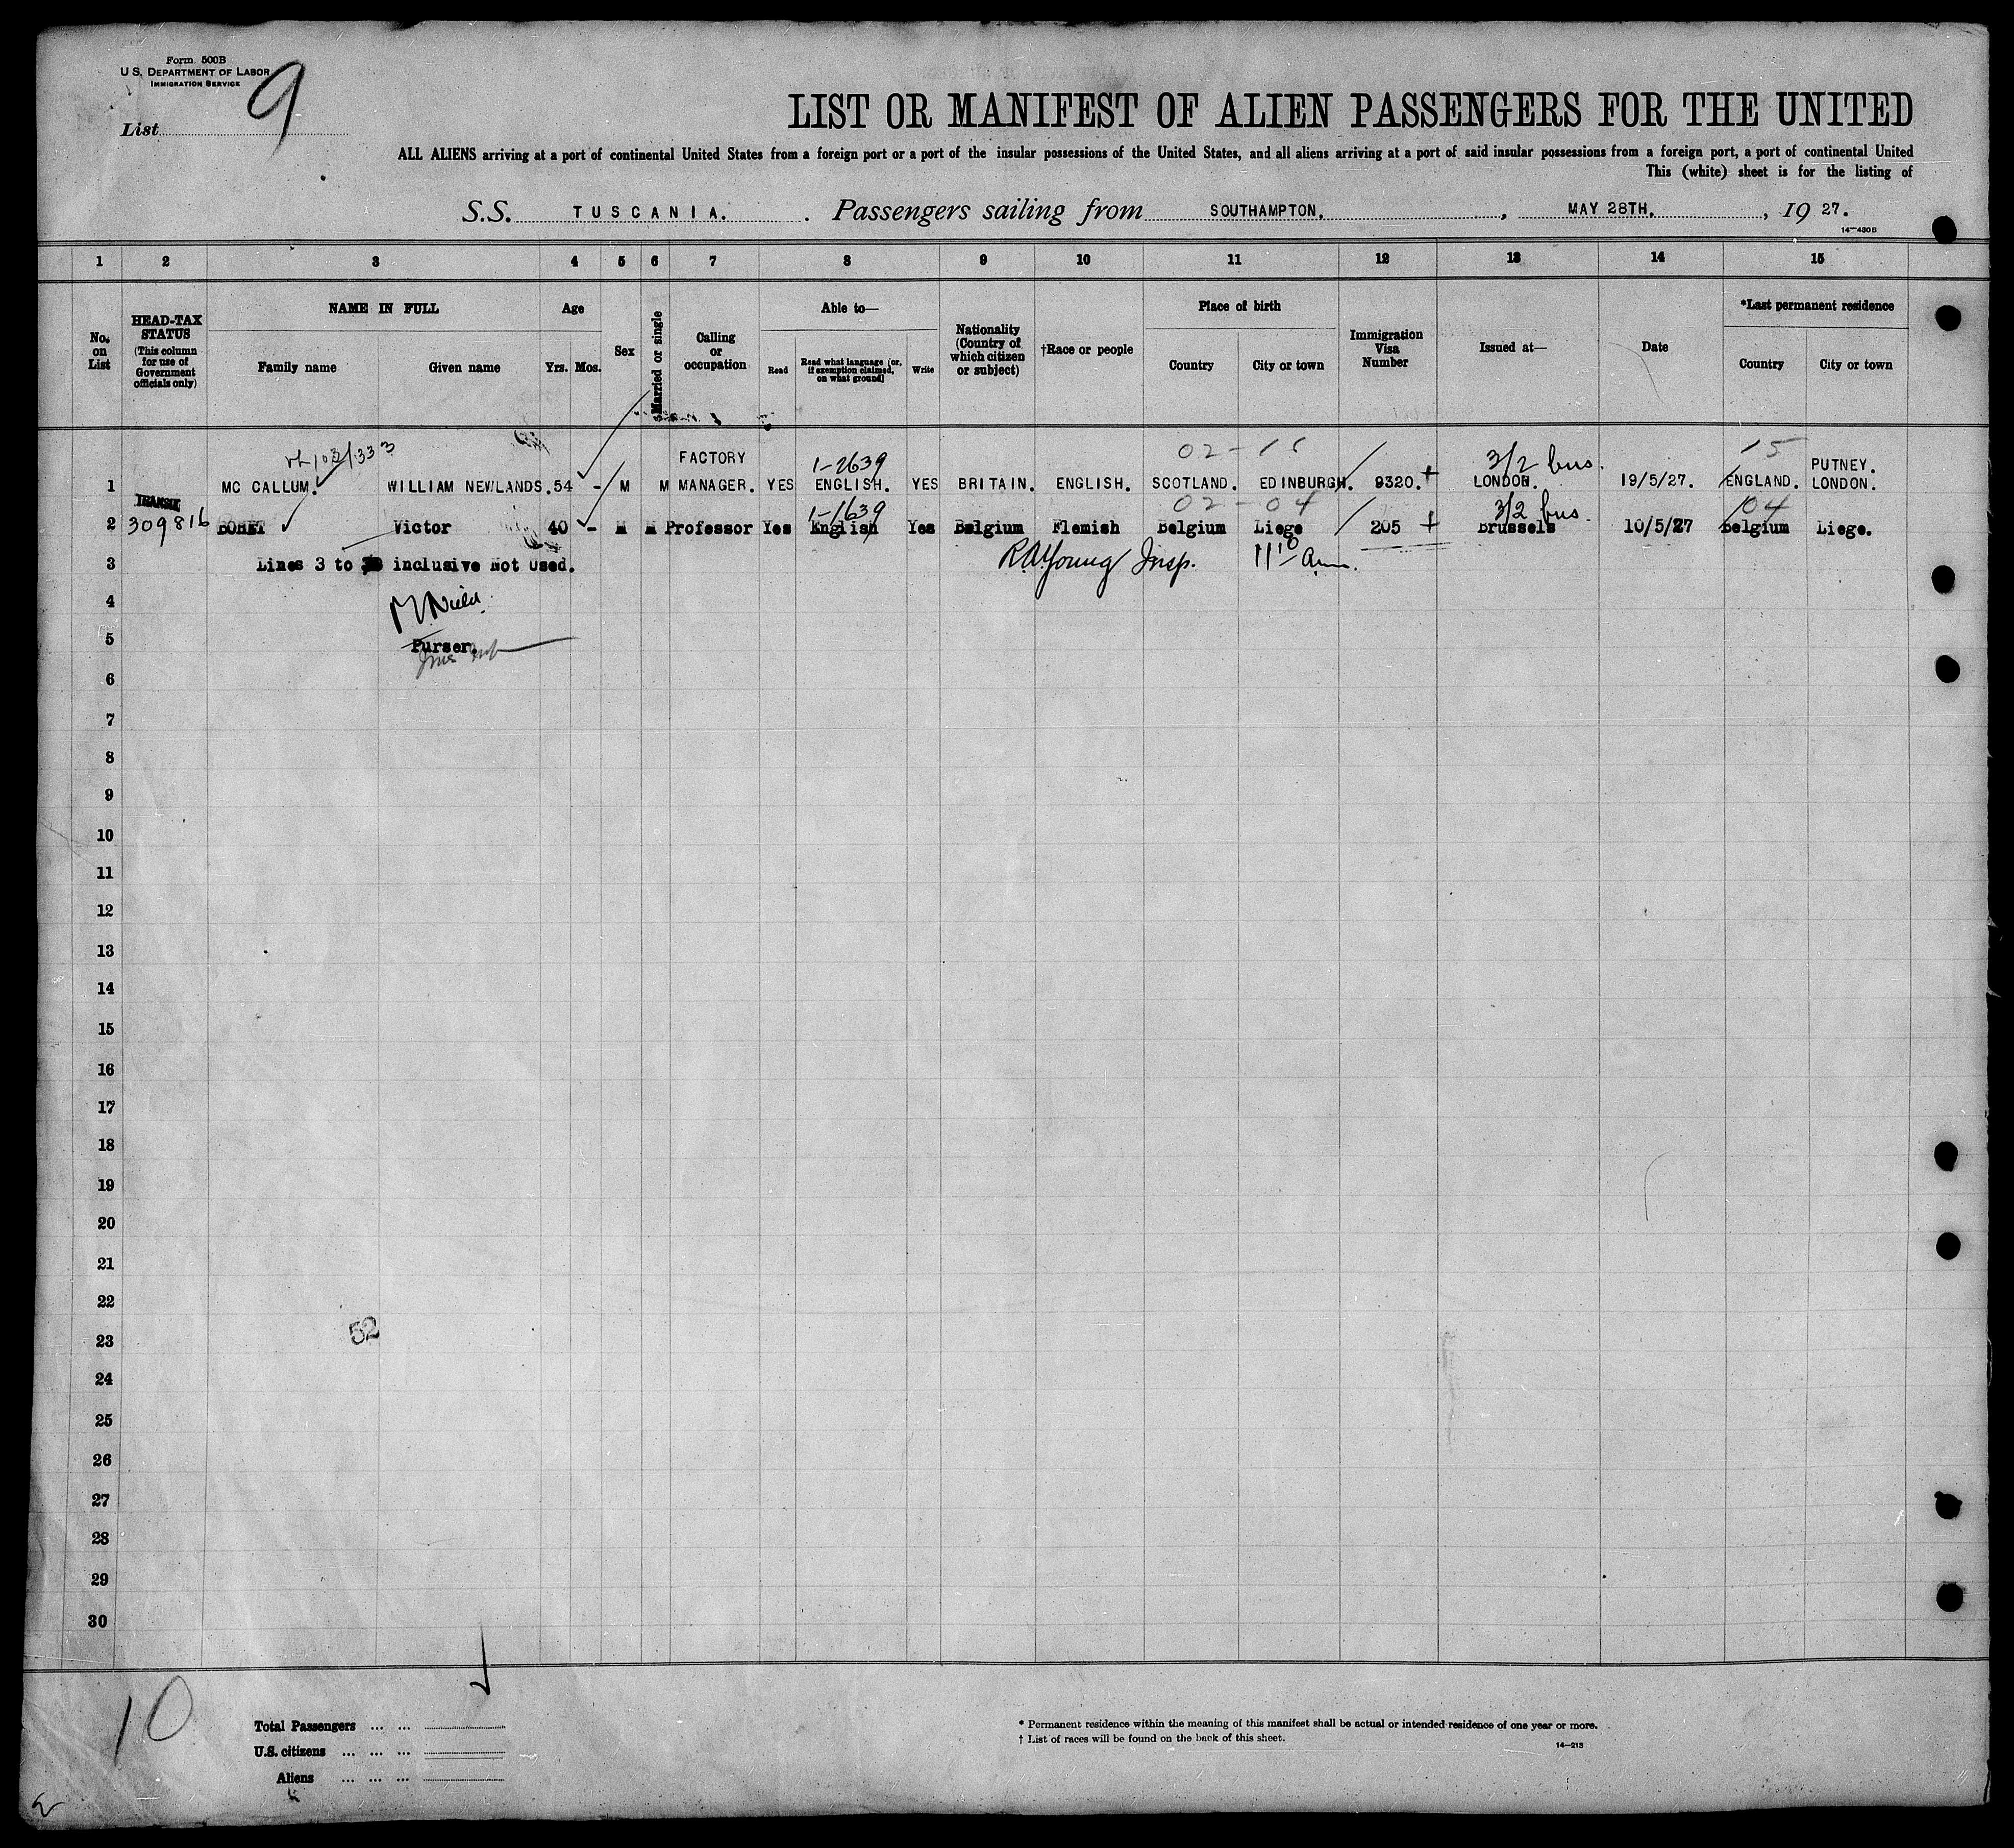 Form 500B
U.S. DEPARTMENT OF LABOR
IMMIGRATION SERVICE
List 9
LIST OR MANIFEST OF ALIEN PASSENGERS FOR THE UNITED
ALL ALIENS arriving at a port of continental United States from a foreign port or a port of the insular possessions of the United States, and all aliens arriving at a port of said insular possessions from a foreign port, a port of continental United
This (white) sheet is for the listing of
S.S. TUSCANIA. Passengers sailing from SOUTHAMPTON, MAY 28TH, 19 27.
14—430B
1 2 3 4 5 6 7 8 9 10 11 12 13 14 15
No. on List
HEAD-TAX STATUS (This column for use of Government officials only)
NAME IN FULL
Family name Given name
Age
Yrs. Mos.
Sex
Married or single
Calling or occupation
Able to—
Read
Read what language (or, if exemption claimed, on what ground)
Write
Nationality (Country of which citizen or subject)
†Race or people
Place of birth
Country City or town
Immigration Visa Number
Issued at—
Date
*Last permanent residence
Country City or town
02 - 15
FACTORY 1-2639 3/2 bus. PUTNEY.
1 MC CALLUM. WILLIAM NEWLANDS. 54 - M M MANAGER. YES ENGLISH. YES BRITAIN. ENGLISH. SCOTLAND. EDINBURGH. 9320. LONDON. 19/5/27. ENGLAND. LONDON.
TRANSIT 1-1639 02 - 04 3/2 bus. 04
2 309816 Victor 40 - M M Professor Yes English Yes Belgium Flemish Belgium Liege 205 Brussels 10/5/27 Belgium Liege.
3 Lines 3 to 30 inclusive Not Used. R.A. Young Insp. 11 10 am.
4
5 Purser.
6
7
8
9
10
11
12
13
14
15
16
17
18
19
20
21
22
52
23
24
25
26
27
28
29
30
10
Total Passengers ... ...
U.S. citizens ... ... ...
Aliens ... ... ...
* Permanent residence within the meaning of this manifest shall be actual or intended residence of one year or more.
† List of races will be found on the back of this sheet.
14—213